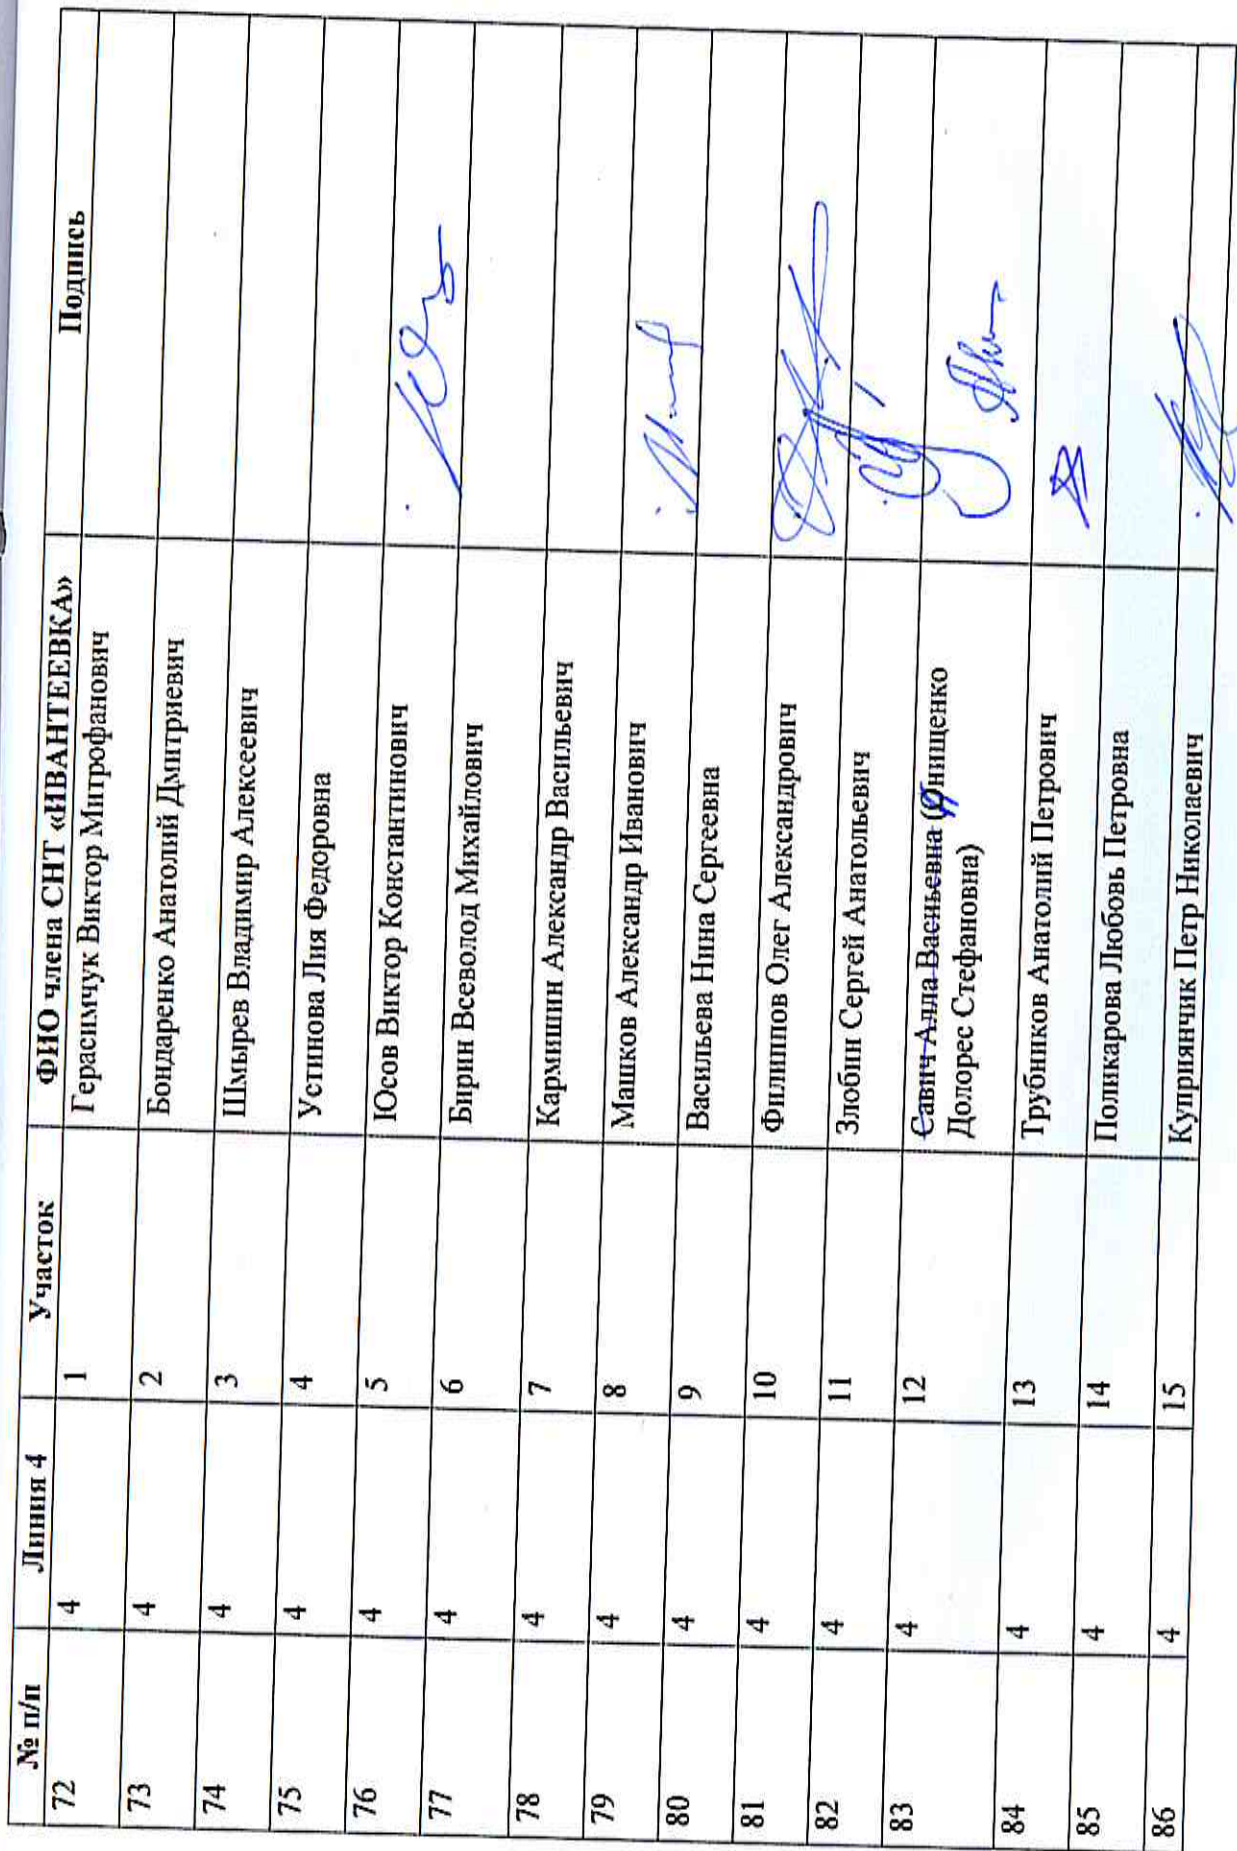 № п/п Линия 4 Участок ФИО члена СНТ «ИВАНТЕЕВКА» Подпись
72 4 1 Герасимчук Виктор Митрофанович
73 4 2 Бондаренко Анатолий Дмитриевич
74 4 3 Шмырев Владимир Алексеевич
75 4 4 Устинова Лия Федоровна
76 4 5 Юсов Виктор Константинович
77 4 6 Бирин Всеволод Михайлович
78 4 7 Кармишин Александр Васильевич
79 4 8 Машков Александр Иванович
80 4 9 Васильева Нина Сергеевна
81 4 10 Филиппов Олег Александрович
82 4 11 Злобин Сергей Анатольевич
83 4 12 Савич Алла Васильевна (Онищенко
Долорес Стефановна)
84 4 13 Трубников Анатолий Петрович
85 4 14 Поликарова Любовь Петровна
86 4 15 Куприянчик Петр Николаевич